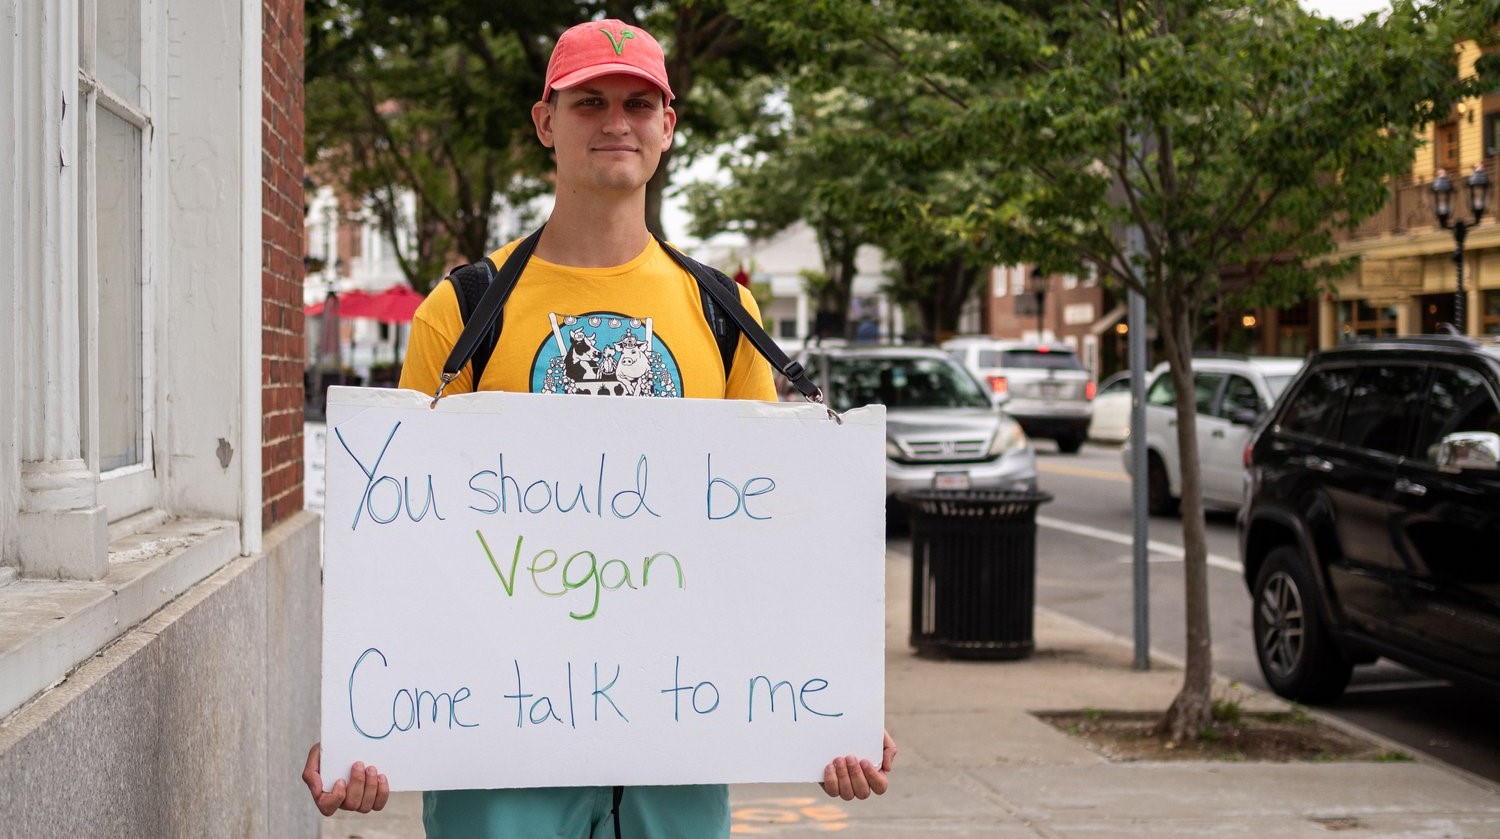 V
You should be
Vegan
Come talk to me